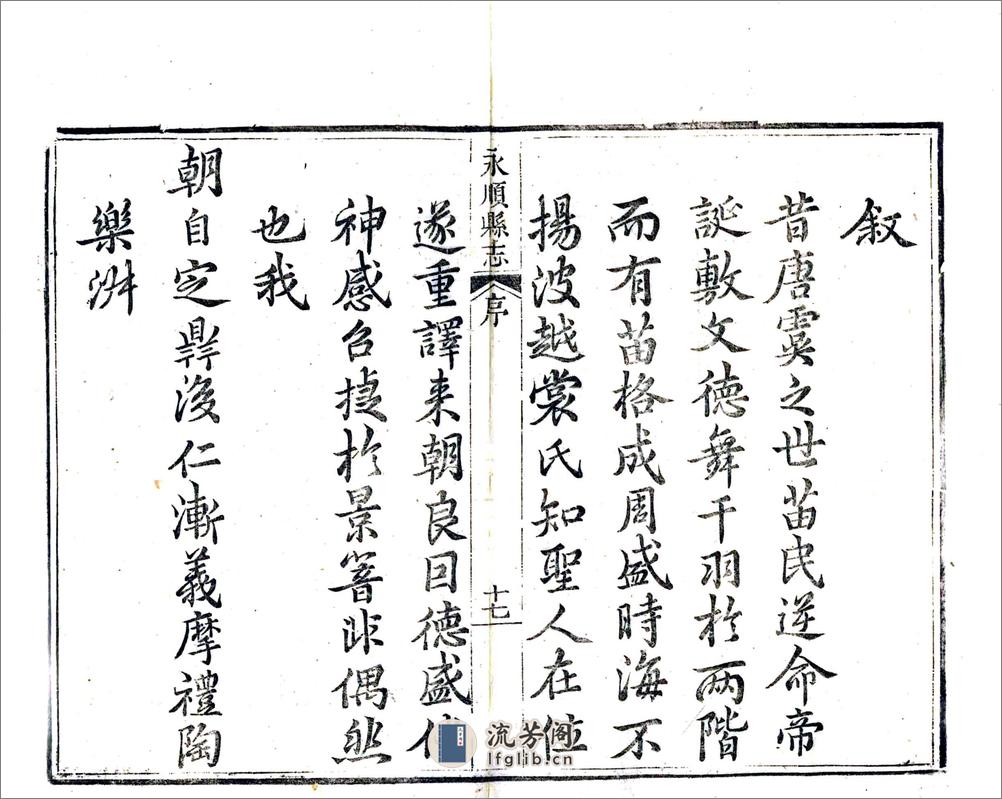 叙
昔唐虞之世苗民逆命帝
誕敷文德舞干羽於兩階
而有苗格成周盛時海不
揚波越裳氏知聖人在位
永順縣志 序 十七
遂重譯来朝良囙德盛化
神感召捷於景響非偶然
也我
朝自定鼎後仁漸義摩禮陶
樂淑
流芳阁
lfglib.cn